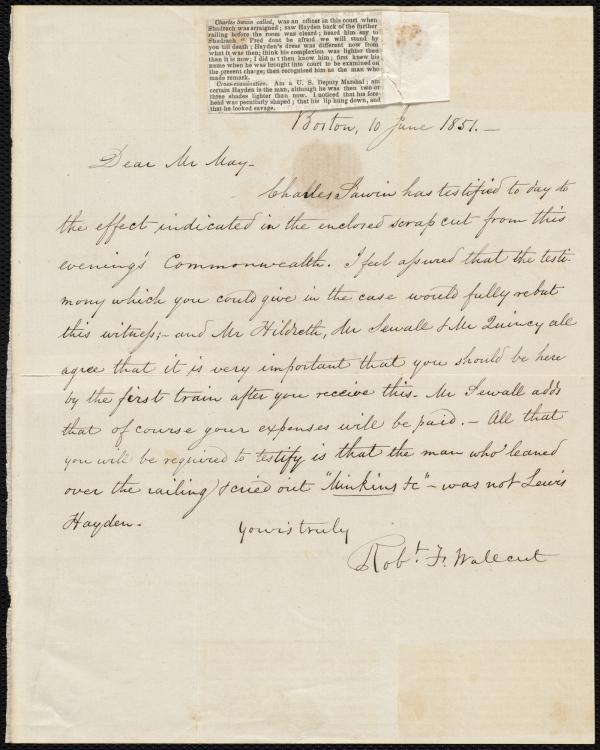 Charles Sawin called, was an officer in this court when
Shadrach was arraigned; saw Hayden back of the further
railing before the room was cleard; heard him say to
Shadrach " Fred dont be afraid we will stand by
you till death; Hayden's dress was different now from
what it was then; think his complexion was lighter then
than it is now; I did not then know him; first knew his
name when he was brought into court to be examined on
the present charge; then recognised him as the man who
made remark.
Cross-examination. Am a U. S. Deputy Marshal; am
certain Hayden is the man, although he was then two or
three shades lighter than now. I noticed that his fore-
head was peculiarly shaped; that his lip hung down, and
that he looked savage.
Boston, 10 June 1851.—
Dear Mr May—
Charles Sawin has testified to day to
the effect indicated in the enclosed scrap cut from this
evening's Commonwealth. I feel assured that the testi-
mony which you could give in the case would fully rebut
this witness;— and Mr Hildreth, Mr Sewall & Mr Quincy all
agree that it is very important that you should be here
by the first train after you receive this— Mr Sewall adds
that of course your expenses will be paid.— All that
you will be required to testify is that the man who leaned
over the railing & cried out "Minkins &c"— was not Lewis
Hayden—
Yours truly
Robt. F. Wallcut